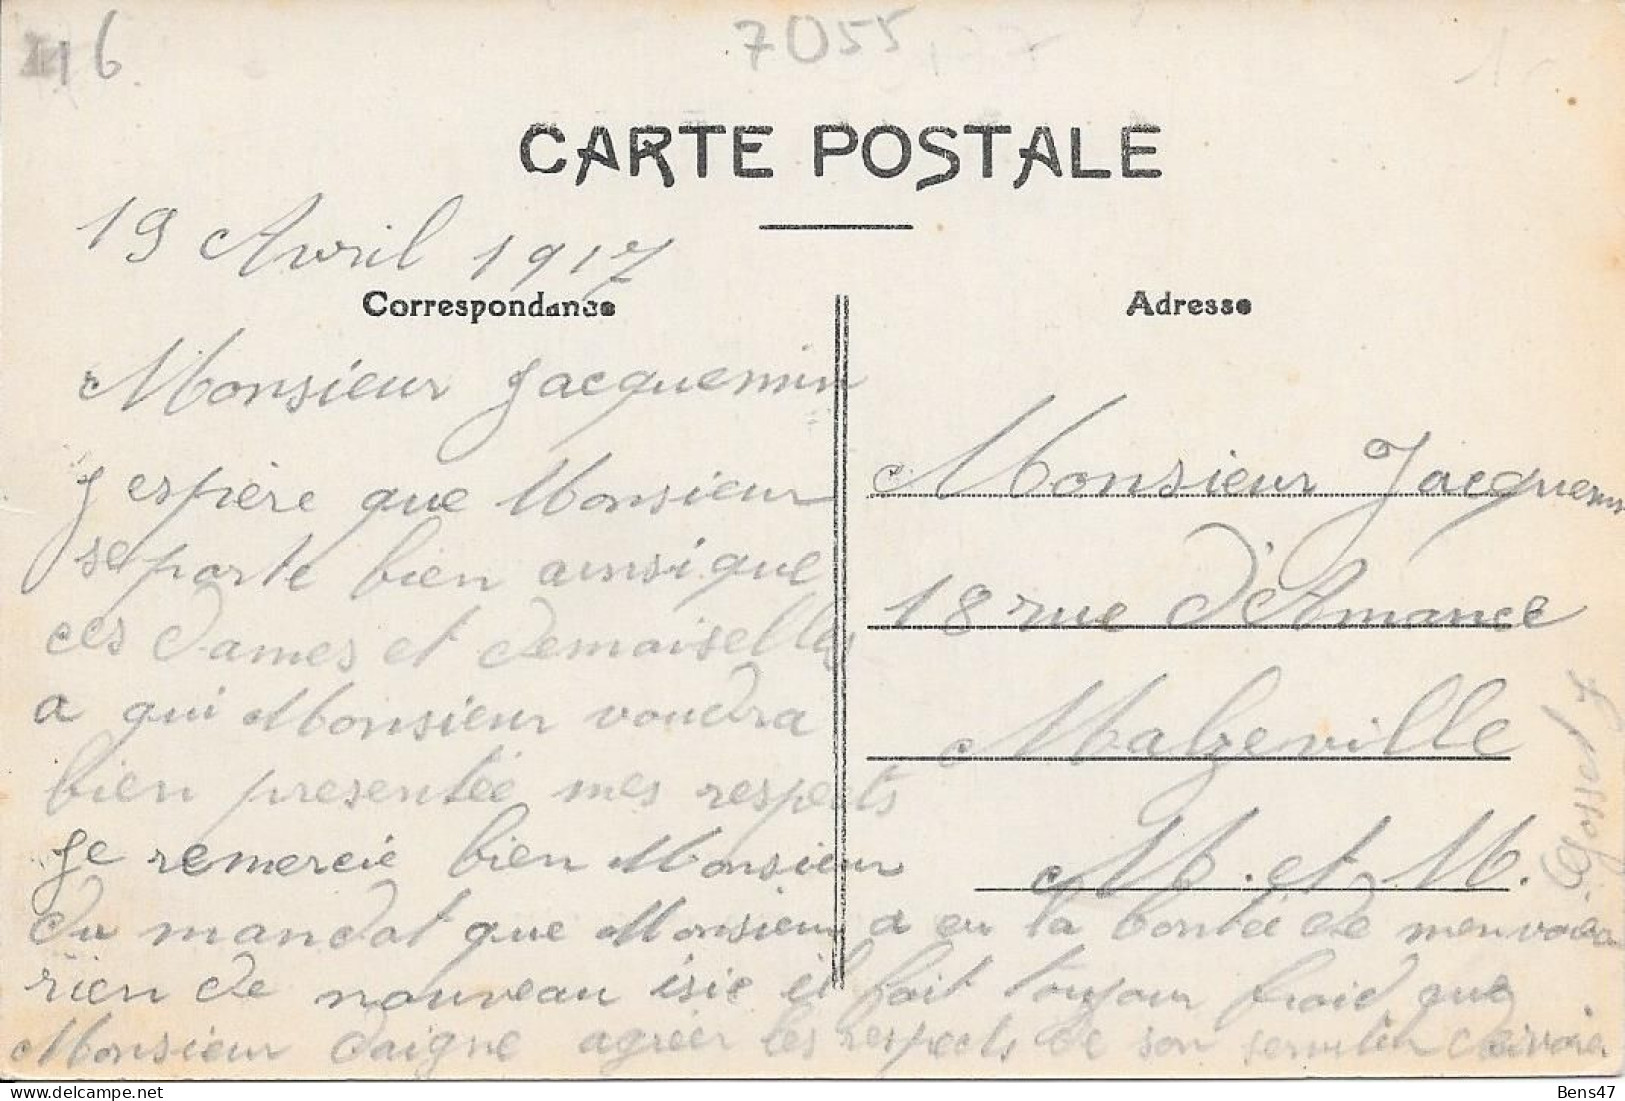 116
7055
1-
CARTE POSTALE
19 Avril 1917
Correspondance
Monsieur Jacquemin
J espière que Monsieur
se porte bien ainsi que
ces Dames et Demoiselles
a qui Monsieur voudra
bien presentée mes respects
Je remercie bien Monsieur
du mandat que Monsieur a eu la bontée de menvoier
rien de nouveau isie il fait toujour froid que
Monsieur daigne agréer les respects de son serviteur
Adresse
Monsieur Jacquemin
18 rue d'Amance
Malzeville
M. et M.
Gosset
Bens47